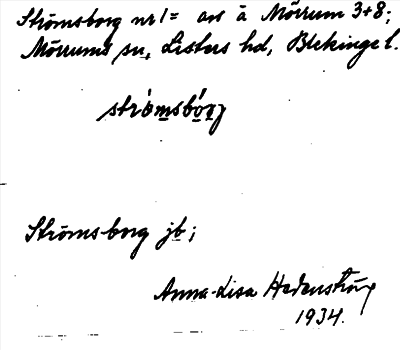 Strömsborg nr 1 = avs å Mörrum 3+8;
Mörrums sn, Listers hd, Blekinge l.
strömsborj
Strömsborg jb;
Anna-Lisa Hedenström
1934.